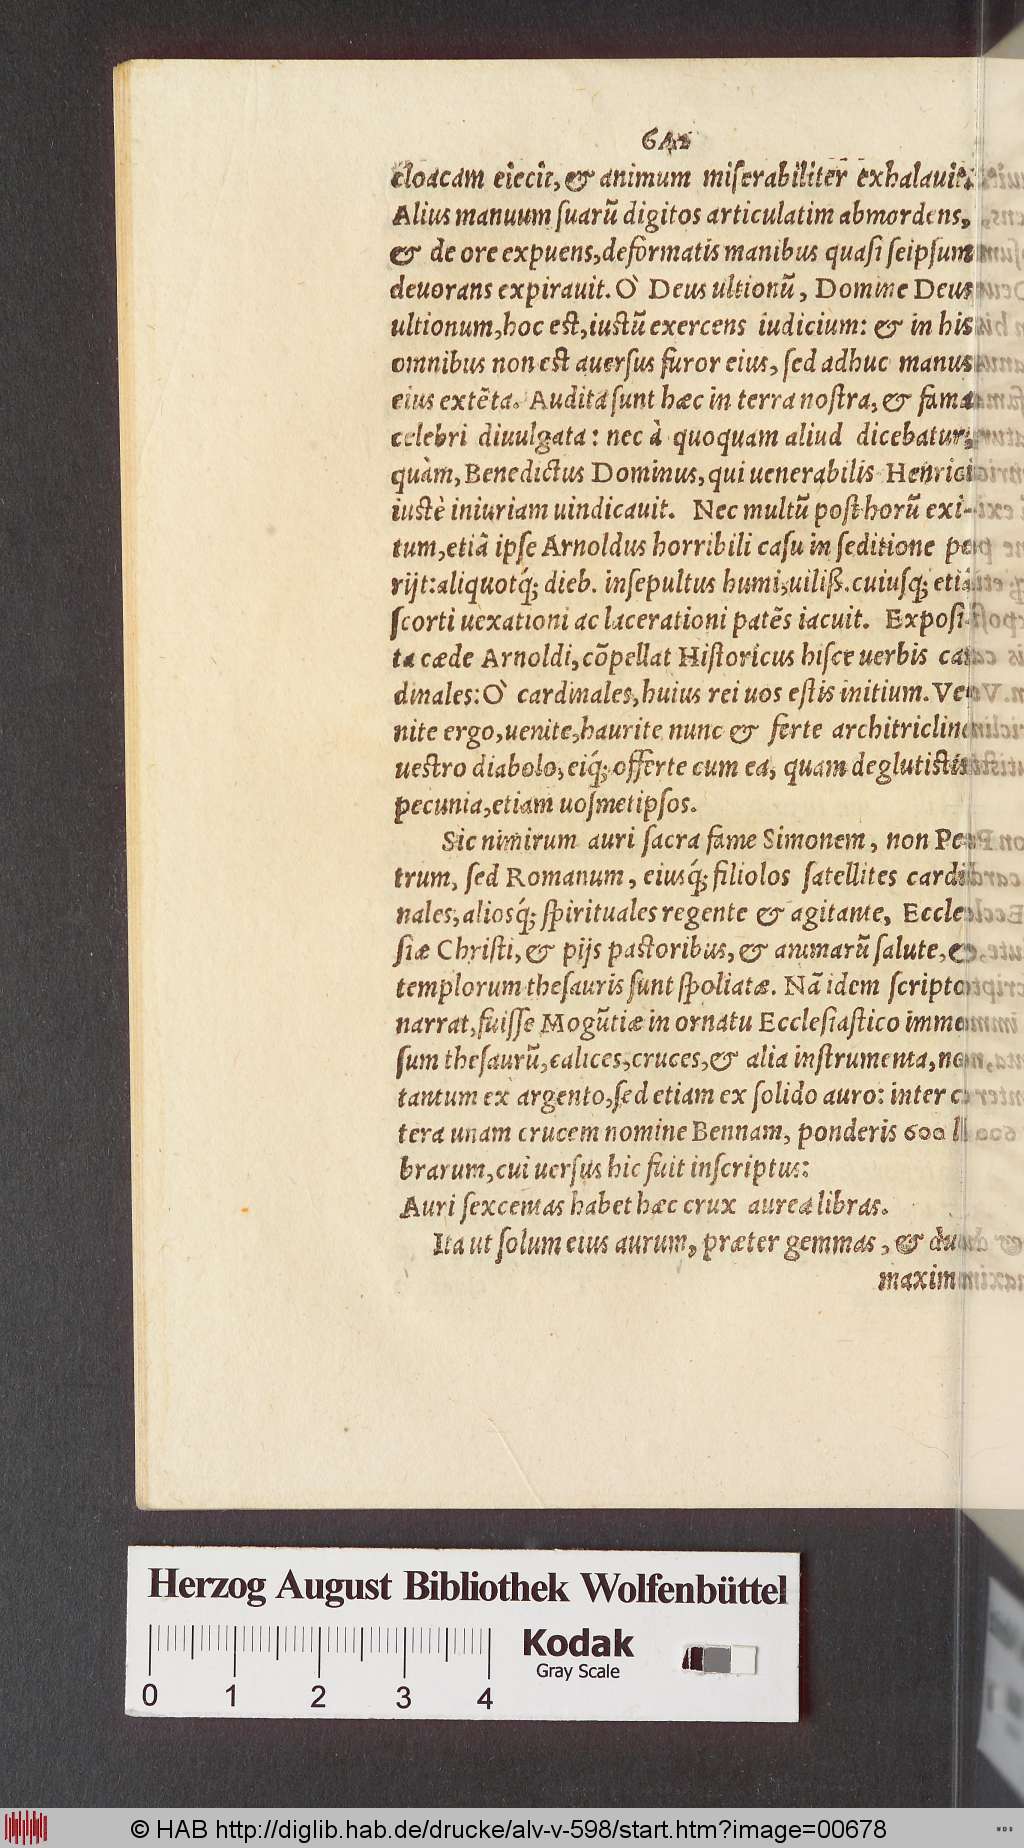 642
cloacam eiecit, & animum miserabiliter exhalauit.
Alius manuum suarũ digitos articulatim abmordens,
& de ore expuens, deformatis manibus quasi seipsum
deuorans expirauit. Ò Deus ultionũ, Domine Deus
ultionum, hoc est, iustũ exercens iudicium: & in his
omnibus non est auersus furor eius, sed adhuc manus
eius extẽta. Audita sunt hæc in terra nostra, & fama
celebri diuulgata: nec à quoquam aliud dicebatur,
quàm, Benedictus Dominus, qui uenerabilis Henrici
iustè iniuriam uindicauit. Nec multũ post horũ exi-
tum, etiã ipse Arnoldus horribili casu in seditione pe
rijt: aliquotq́; dieb. insepultus humi, uiliß. cuiusq; etiã
scorti uexationi ac lacerationi patẽs iacuit. Exposi-
ta cæde Arnoldi, cõpellat Historicus hisce uerbis car
dinales: Ò cardinales, huius rei uos estis initium. Ve
nite ergo, uenite, haurite nunc & ferte architriclino
uestro diabolo, eiq́; offerte cum ea, quam deglutistis
pecunia, etiam uosmetipsos.
Sic nimirum auri sacra fame Simonem, non Pe
trum, sed Romanum, eiusq́; filiolos satellites cardi
nales, aliosq́; spirituales regente & agitante, Eccle
siæ Christi, & pijs pastoribus, & animarũ salute, &
templorum thesauris sunt spoliatæ. Nã idem scriptor
narrat, fuisse Mogũtiæ in ornatu Ecclesiastico immen
sum thesaurũ, calices, cruces, & alia instrumenta, non
tantum ex argento, sed etiam ex solido auro: inter cæ
tera unam crucem nomine Bennam, ponderis 600 li
brarum, cui uersus hic fuit inscriptus:
Auri sexcentas habet hæc crux aurea libras.
Ita ut solum eius aurum, præter gemmas, & duas
maxim
Herzog August Bibliothek Wolfenbüttel
Kodak
Gray Scale
0 1 2 3 4
© HAB http://diglib.hab.de/drucke/alv-v-598/start.htm?image=00678